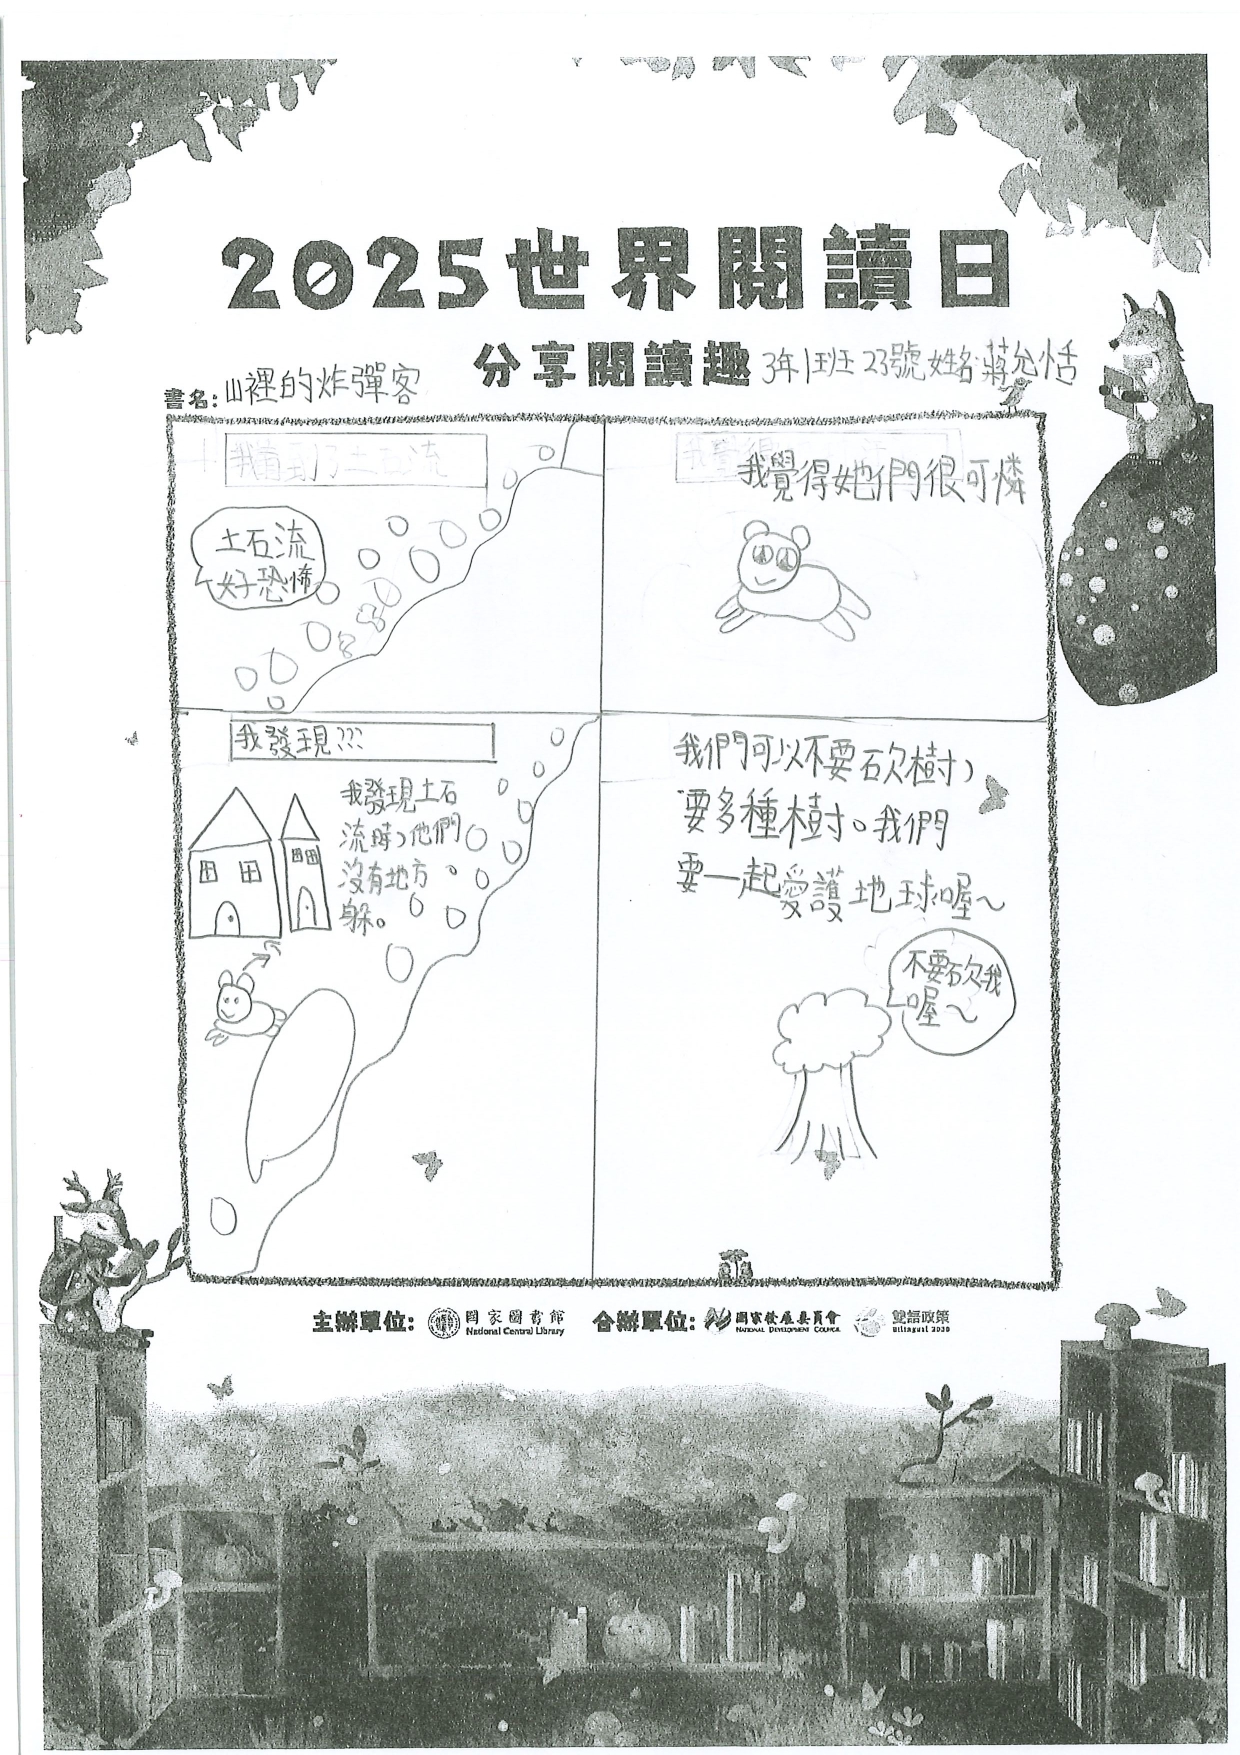 2025世界閱讀日
分享閱讀趣
3年1班23號姓名:蔣允恬
書名:山裡的炸彈客
我看到了土石流
土石流
好恐怖
我覺得她們很可憐
我發現???
我發現土石
流時,他們
沒有地方
躲。
我們可以不要砍樹,
要多種樹。我們
要一起愛護地球喔~
不要砍我
喔~
主辦單位: 國家圖書館 合辦單位: 國家發展委員會 雙語政策
National Central Library NATIONAL DEVELOPMENT COUNCIL Bilingual 2030